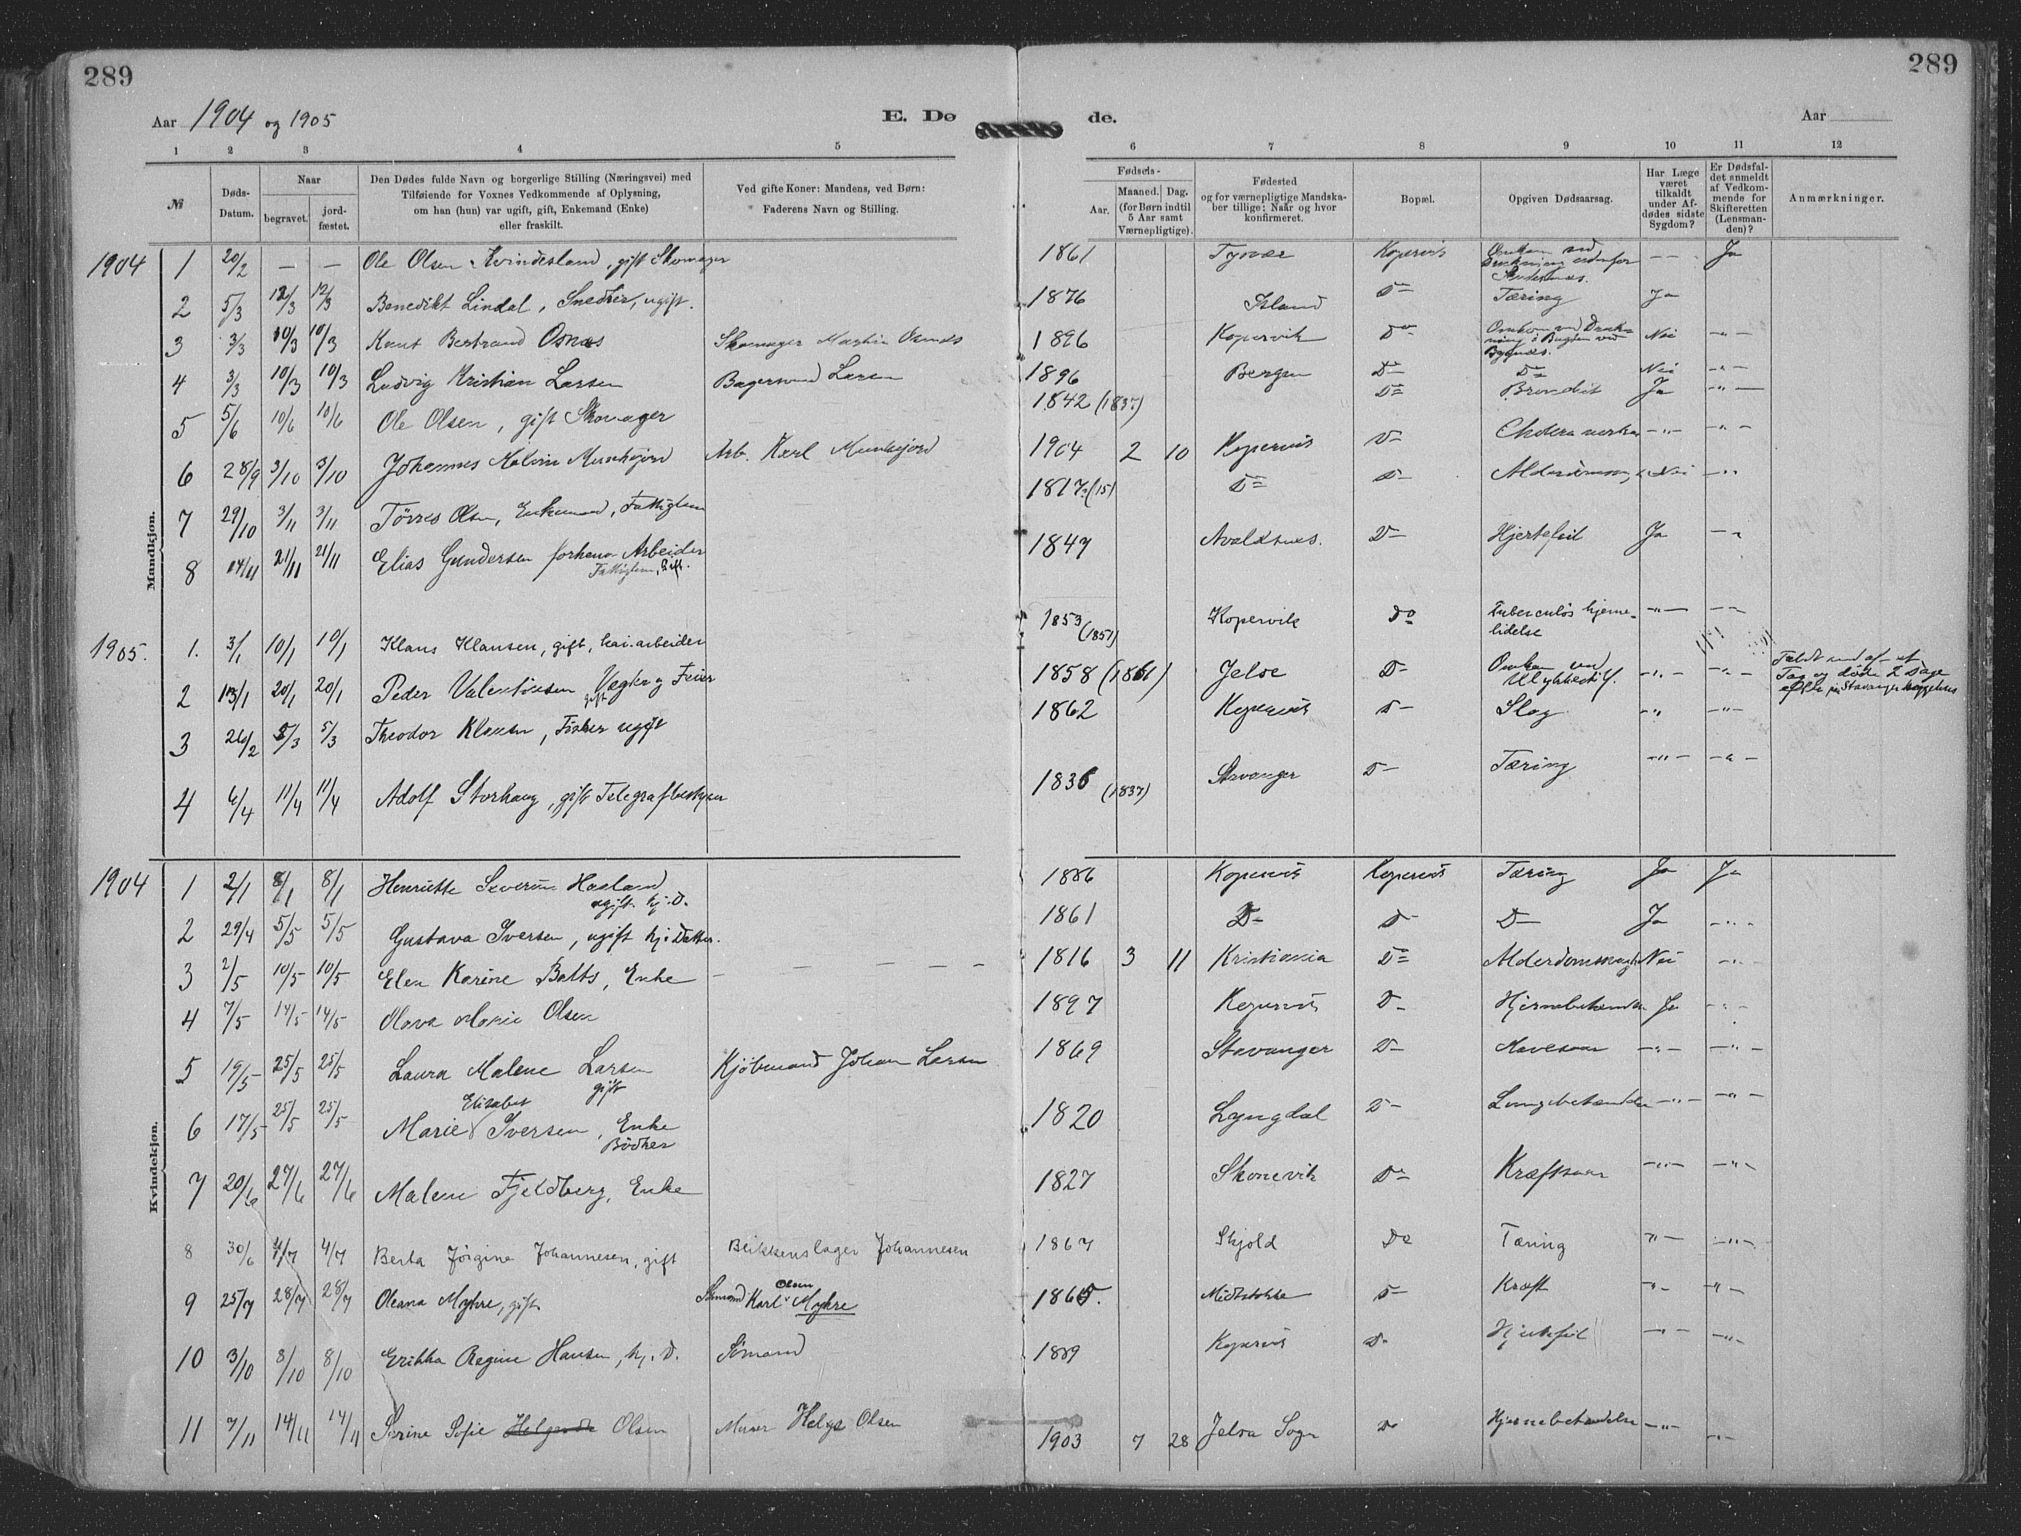 289
289
Aar 1904 og 1905
E. Dø
de.
Aar
1 2 3 4 5 6 7 8 9 10 11 12
№
Døds-Datum.
Naar
begravet.
jord-fæstet.
Den Dødes fulde Navn og borgerlige Stilling (Næringsvei) med
Tilføiende for Voxnes Vedkommende af Oplysning,
om han (hun) var ugift, gift, Enkemand (Enke)
eller fraskilt.
Ved gifte Koner: Mandens, ved Børn:
Faderens Navn og Stilling.
Fødsels-
Aar.
Maaned. Dag.
(for Børn indtil
5 Aar samt
Værnepligtige).
Fødested
og for værnepligtige Mandska-
ber tillige: Naar og hvor
konfirmeret.
Bopæl.
Opgiven Dødsaarsag.
Har Læge
været
tilkaldt
under Af-
dødes sidste
Sygdom?
Er Dødsfal-
det anmeldt
af Vedkom-
mende for
Skifteretten
(Lensman-
den)?
Anmærkninger.
Mandkjøn.
1904 1 20/2 — — Ole Olsen Kvindesland, gift Skomager 1861 Tysvær Kopervik Omkom ved Drukning udenfor Skudesnes. -- Ja
2 5/3 12/3 12/3 Benedikt Lindal, Snedker, ugift. 1876 Island Do Tæring Ja
3 3/3 10/3 10/3 Knut Bertrand Osnes Skomager Martin Osnes 1896 Kopervik Do Omkom ved Druk-ning i Bugten ved Bygnes. Nei -"-
4 3/3 10/3 10/3 Ludvig Kristian Larsen Bagersvend Larsen 1896 Bergen Do Do Nei -"-
5 5/6 10/6 10/6 Ole Olsen, gift Skomager 1842 (1837) Do Ja -"-
6 28/9 3/10 3/10 Johannes Malvin Munkejord Arb. Karl Munkejord 1904 2 10 Kopervik Do -"- -"-
7 29/10 3/11 3/11 Tørres Olsen, Enkemand, Fattiglem 1817 (15) Do Do Nei -"-
8 14/11 21/11 21/11 Elias Gundersen forhenv Arbeider Fattiglem, Gift. 1847 Avaldsnes. Do Hjertefeil Ja -"-
1905. 1. 3/1 10/1 10/1 Klaus Klausen, gift, hai.arbeider 1853 (1851) Kopervik Do Tuberculøs hjerne-lidelse -"- -"-
2 13/1 20/1 20/1 Peder Valentinsen Vægter og Feier gift 1858 (1861) Jelse Do Omkom ved Ulykkestilf. -"- -"- Faldt ned af et Tag og døde 2 Dage efter paa Stavanger
3 26/2 5/3 5/3 Theodor Klausen, Fisker ugift 1862 Kopervik Do Slag -"- -"-
4 6/4 11/4 11/4 Adolf Storhaug, gift Telegrafbestyrer 1836 (1837) Stavanger Do Tæring -"- -"-
Kvindekjøn.
1904 1 2/1 8/1 8/1 Henriette Severine Hasland ugift hj. D. 1886 Kopervik Kopervik Tæring Ja Ja
2 29/4 5/5 5/5 Gustava Iversen, ugift hj. Datter. 1861 Do Do Do Ja -"-
3 2/5 10/5 10/5 Elen Karine Betts, Enke — — — — — 1816 3 11 Kristiania Do Nei -"-
4 7/5 14/5 14/5 Olava Marie Olsen 1897 Kopervik Do Hjernebetændelse Ja -"-
5 19/5 25/5 25/5 Laura Malene Larsen gift Kjøbmand Johan Larsen 1869 Stavanger Do Mavesaar -"- -"-
6 17/5 25/5 25/5 Marie Elisabet Iversen, Enke Bødker 1820 Lyngdal Do Lungebetændelse -"- -"-
7 20/6 27/6 27/6 Malene Fjeldberg, Enke 1827 Skonevik Do Kræftsaar -"- -"-
8 30/6 4/7 4/7 Berta Jørgine Johannesen, gift Blikkenslager Johannesen 1867 Skjold Do Tæring -"- -"-
9 25/7 28/7 28/7 Oleana Myhre, gift Sømand Karl Olsen Myhre 1865. Midtstokke Do Kræft -"- -"-
10 3/10 8/10 8/10 Erikka Regine Hansen, hj. D. Sømand 1889 Kopervik Do Hjertefeil -"- -"-
11 7/11 14/11 14/11 Serine Sofie Helgesen Olsen Murer Helge Olsen 1903 7 28 Jelsa Sogn Do Hjernebetændelse -"- -"-